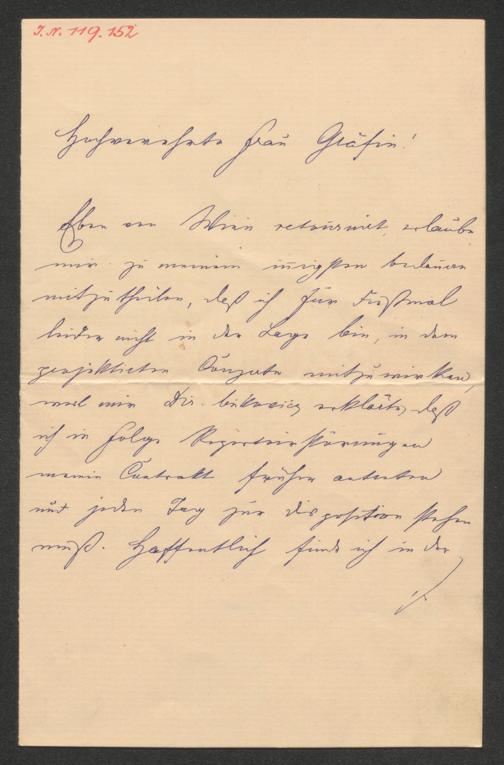 I.N. 119.152
Hochverehrte Frau Gräfin!
Eben von Wien retournirt, erlaube
mir zu meinem innigsten bedauern
mitzutheilen, daß ich für diesmal
leider nicht in der Lage bin, in dem
projektierten Conzerte mitzuwirken,
weil mir Dir. erklärte, daß
ich in Folge Repertoirstörungen
meinen Contrakt früher antreten
und jeden Tag zur disposition stehen
muß. Hoffentlich finde ich in der